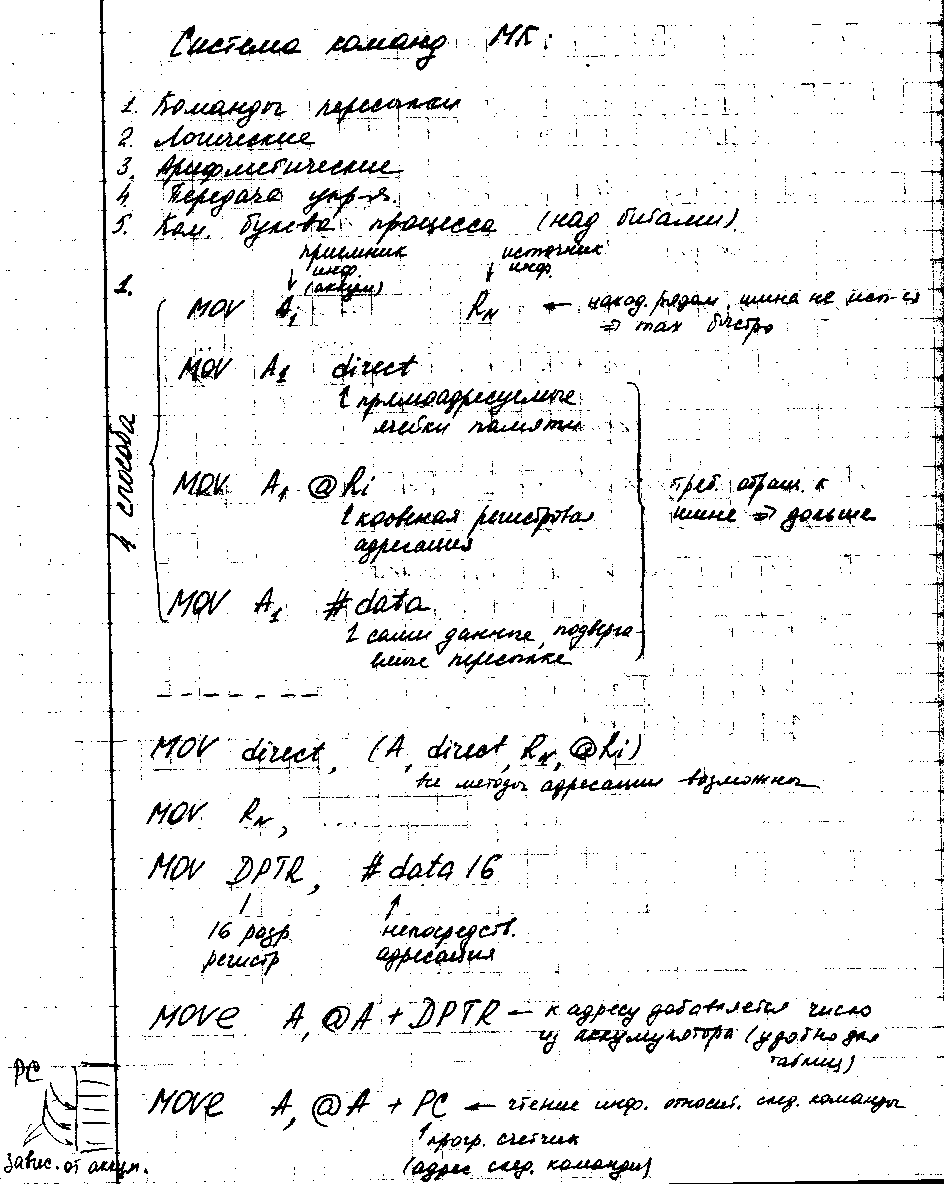 Система команд МК:
1. Команды пересылки
2. Логические
3. Арифметические
4. Передача упр-я.
5. Ком. булева процесса (над битами).
приемник источник
инф. инф.
(аккум)
1.
MOV A, RN ← наход. рядом, шина не исп-ся
⇒ max быстро
MOV A, direct
↑ прямоадресуемые
ячейки памяти
4 способа
MOV A, @Ri
↑ косвенная регистровая
адресация
треб. обращ. к
шине ⇒ дольше
MOV A, #data
↑ сами данные, подверга-
емые пересылке
MOV direct, (A, direct, RN, @Ri)
все методы адресации возможны
MOV RN,
MOV DPTR, #data 16
16 разр. непосредств.
регистр адресация
MOVe A, @A + DPTR ← к адресу добавляется число
из аккумулятора (удобно для
таблиц)
PC
MOVe A, @A + PC ← чтение инф. относит. след. команды
↑ прогр. счетчик
завис. от аккум. (адрес след. команды)